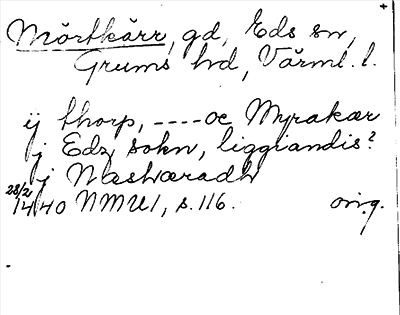 Mörtkärr, gd, Eds sn,
Grums hd, Värml. l.
ij thorp, ---- oc Myrakær
j Edz sokn, liggiandis?
j Næshæradh
28/2 1440 NMU1, s. 116. orig.